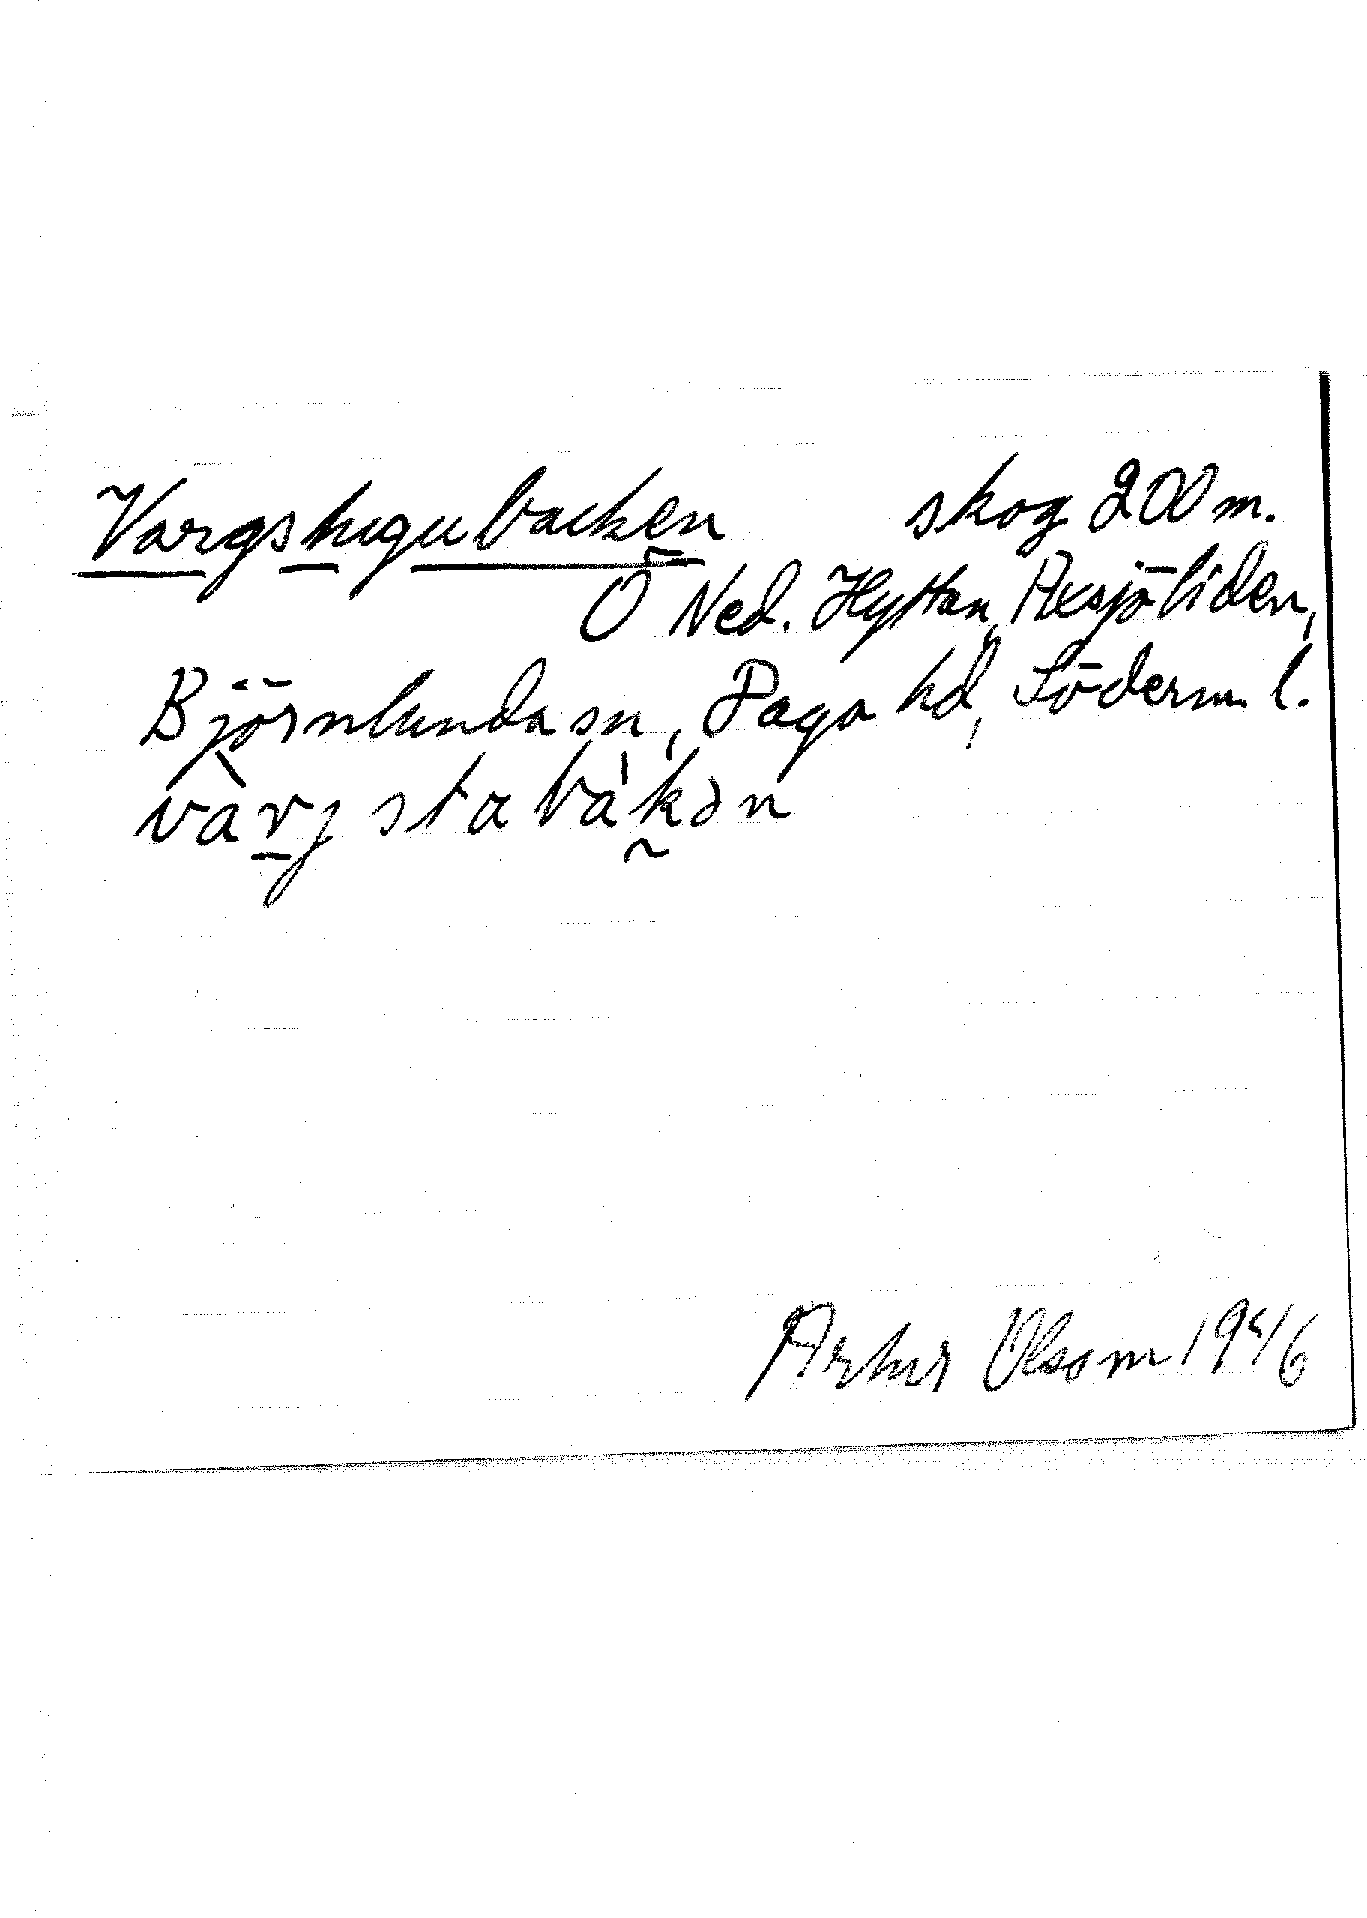 Vargstugubacken skog 200 m.
Ö Ned. Hyttan, Axsjöliden,
Björnlunda sn, Daga hd, Söderm. l.
varjstabakən
Artur Olsom 1946